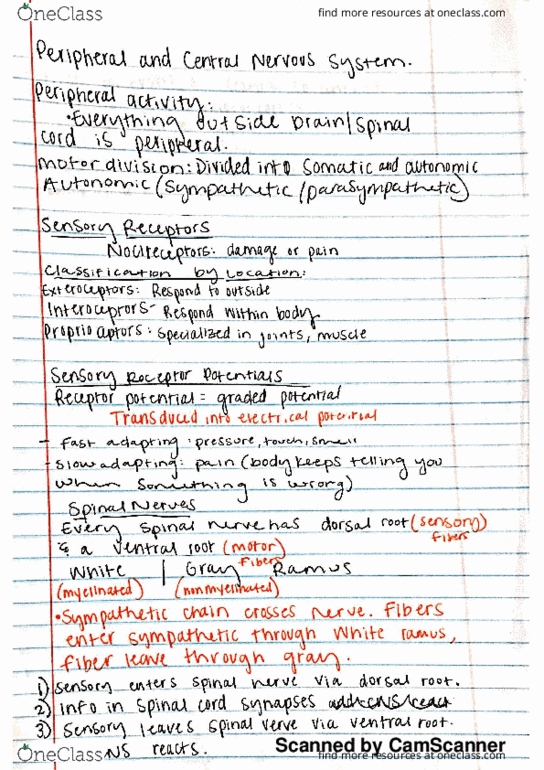 OneClass
find more resources at oneclass.com
Peripheral and Central Nervous System.
Peripheral activity:
•Everything outside brain/spinal
cord is peripheral.
Motor division: Divided into Somatic and autonomic
Autonomic (Sympathetic/parasympathetic)
Sensory Receptors
Nocireceptors: damage or pain
Classification by Location:
Exteroceptors: Respond to outside
Interoceptors- Respond within body
Proprioaptors: specialized in joints, muscle
Sensory Receptor Potentials
Receptor potential = graded potential
Transduced into electrical potential
- Fast adapting: pressure, touch, smell
- Slow adapting: pain (body keeps telling you
when something is wrong)
Spinal Nerves
Every spinal nerve has dorsal root (sensory)
fibers
& a ventral root (motor)
fibers
White | Gray Ramus
(myelinated) (nonmyelinated)
•Sympathetic chain crosses nerve. Fibers
enter sympathetic through white ramus,
fiber leave through gray.
1) Sensory enters spinal nerve via dorsal root.
2) Info in Spinal cord synapses
3) Sensory leaves spinal nerve via ventral root.
NS reacts.
OneClass
Scanned by CamScanner
find more resources at oneclass.com